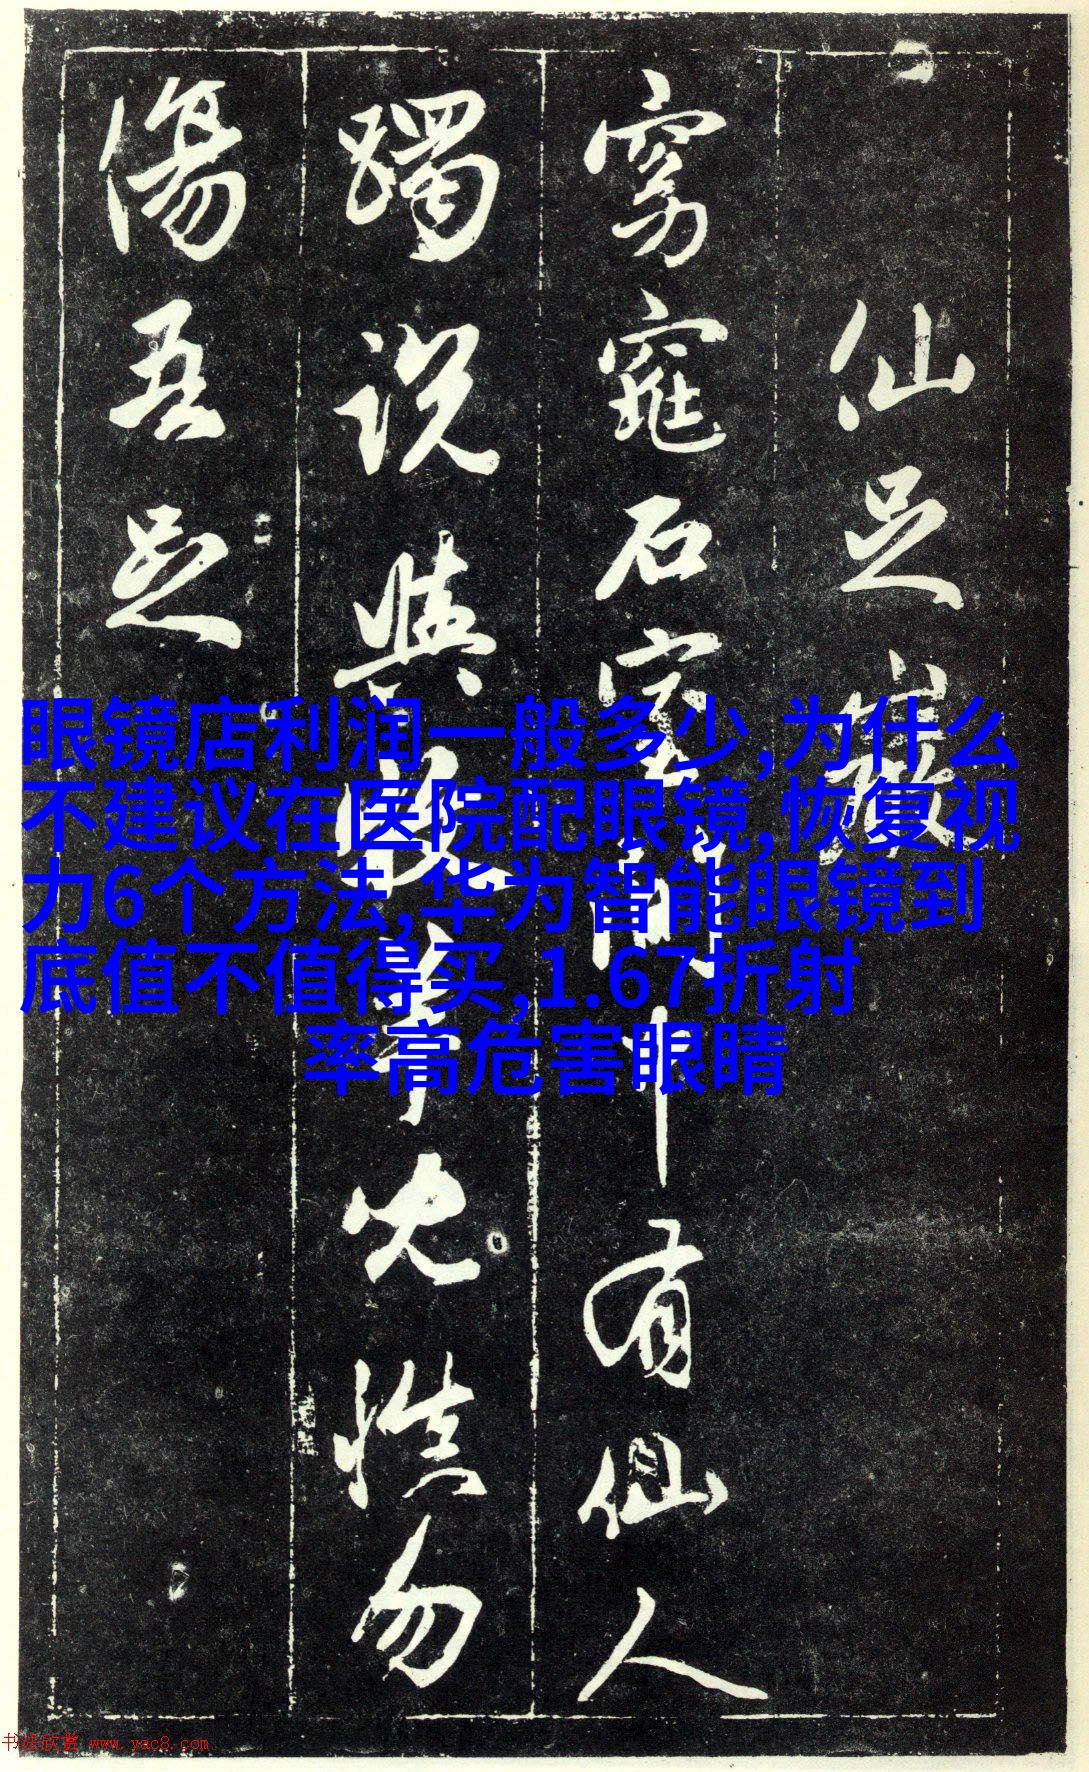 仙足巖
窈窕石室間中有仙人
躅說與牧羊兒慎勿
傷吾足
眼镜店利润一般多少,为什么
不建议在医院配眼镜,恢复视
力6个方法,华为智能眼镜到
底值不值得买,1.67折射
率高危害眼睛
书法欣赏 www.yac8.com